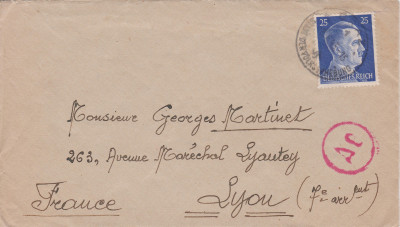 25 25
DEUTSCHES REICH
Monsieur Georges Martinet
263, Avenue Maréchal Lyautey
Lyon (7e arrpnt)
France